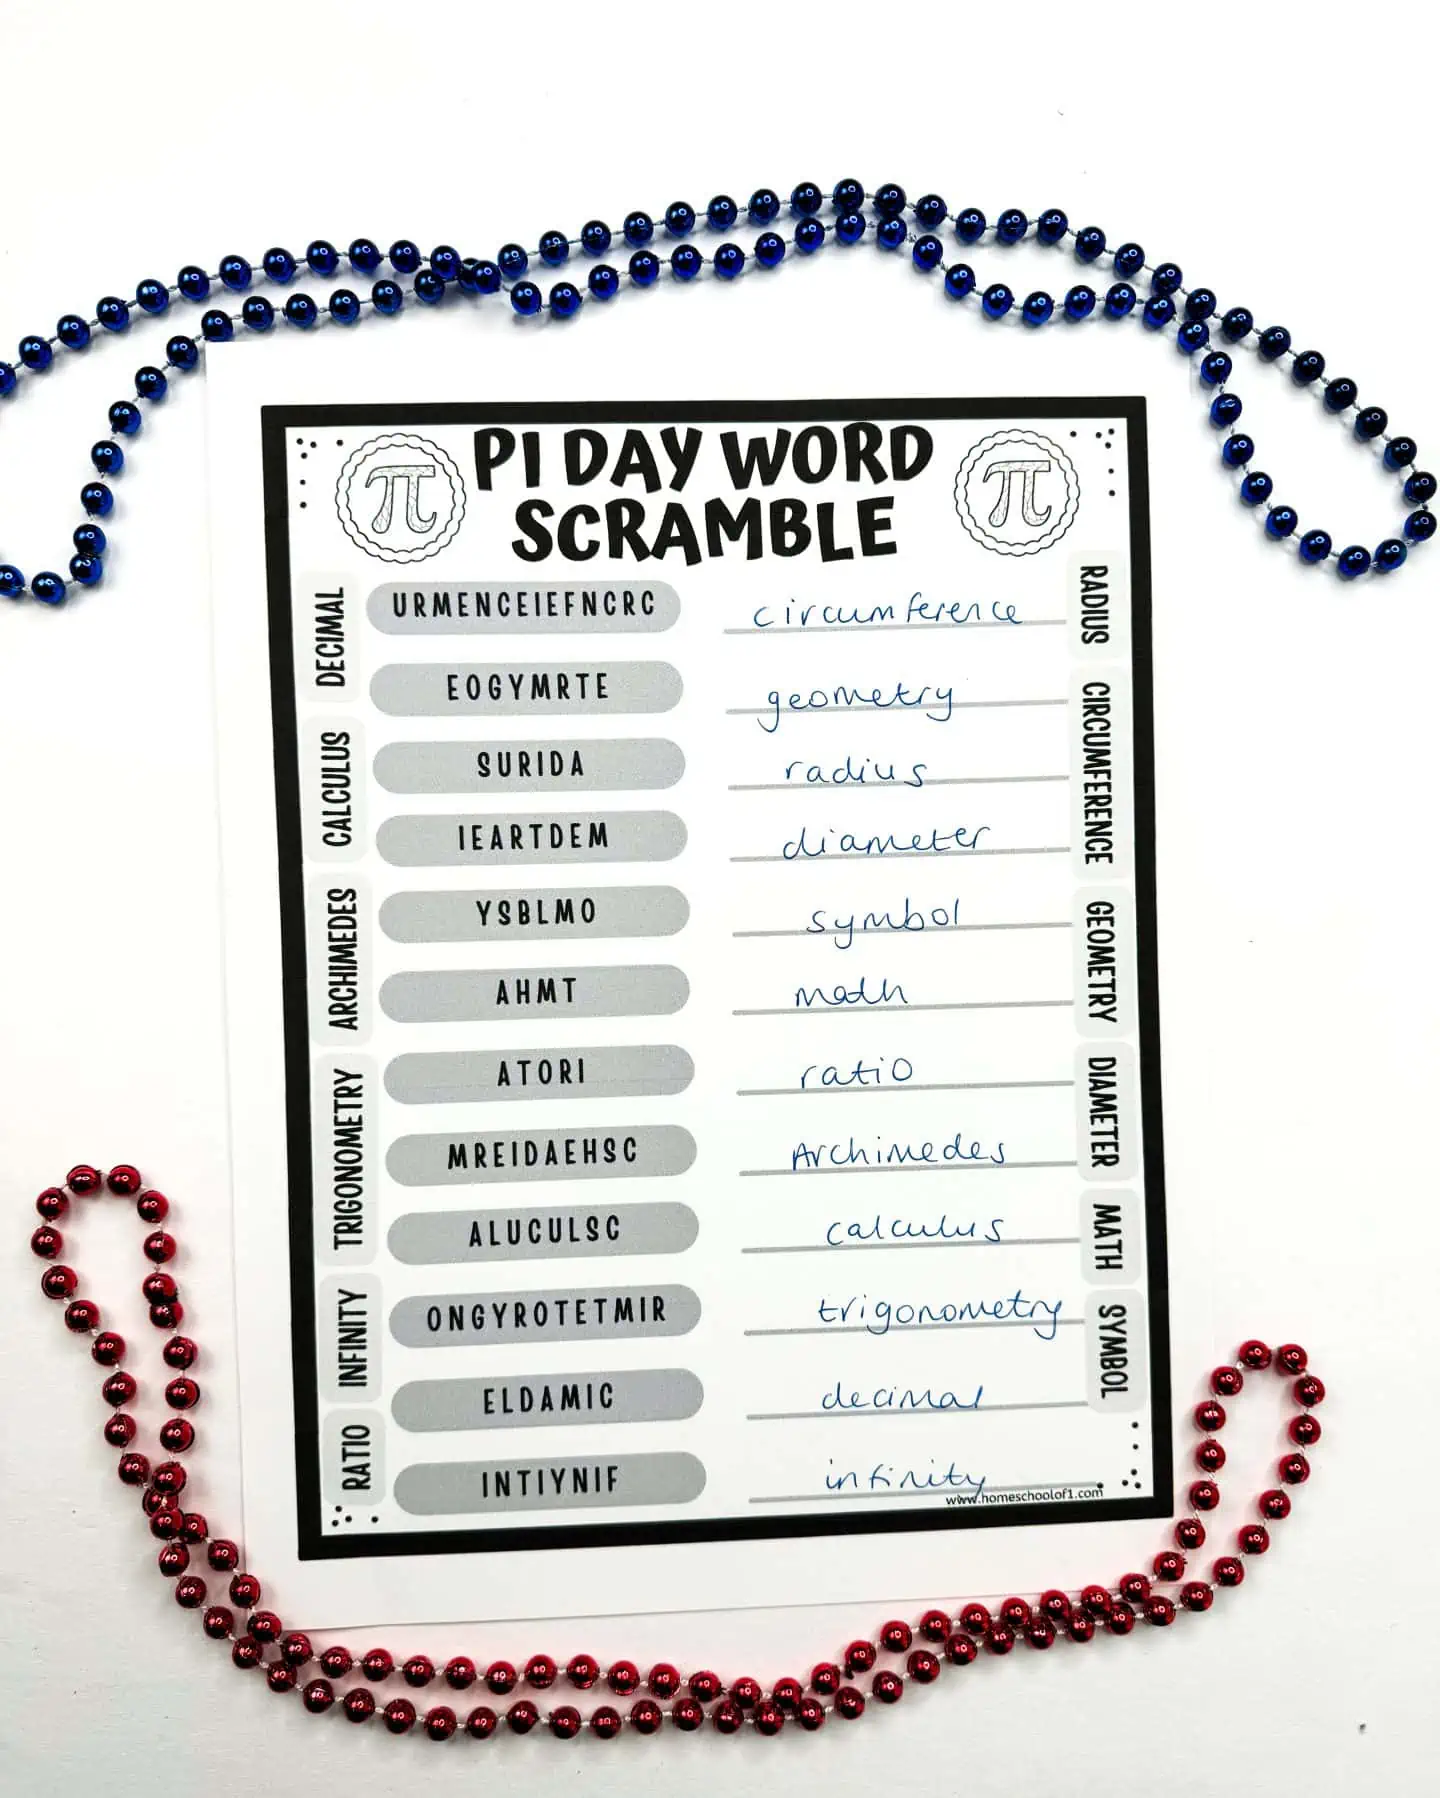 PI DAY WORD
SCRAMBLE
π
π
DECIMAL
CALCULUS
ARCHIMEDES
TRIGONOMETRY
INFINITY
RATIO
URMENCEIEFNCRC circumference
EOGYMRTE geometry
SURIDA radius
IEARTDEM diameter
YSBLMO symbol
AHMT math
ATORI ratio
MREIDAEHSC Archimedes
ALUCULSC calculus
ONGYROTETMIR trigonometry
ELDAMIC decimal
INTIYNIF infinity
RADIUS
CIRCUMFERENCE
GEOMETRY
DIAMETER
MATH
SYMBOL
www.homeschoolof1.com